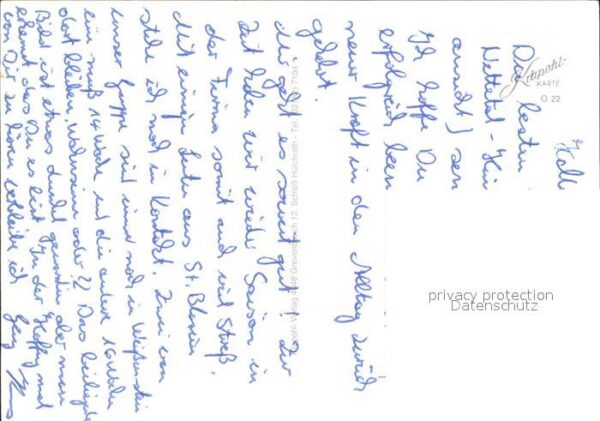 Hall
Die besten
Nettetal - Hin
ansicht) sen
Ich hoffe Du
erfolgreich bei
neuer Kraft in den Alltag zurück
gekehrt.
Mir geht es soweit gut. Zur
Zeit haben wir wieder Saison in
der Firma somit auch viel Streß.
Mit einigen Leuten aus St. Blasien
stehe ich noch in Kontakt. Zwei von
unser Gruppe sind immer noch in
ein muß 14 Woche und die andere 16 Wochen
dort bleiben, Wahnsinn oder?? Das beiliegende
Bild ist etwas dunkel geworden aber man
erkennt das Du es bist. In der Hoffnung mal
von Dir zu hören verbleibe ich
Krapohl-
KARTE
O 22
Krapohl-Verlag 4048 Grevenbroich 12, Schloß Hülchrath - Tel.
privacy protection
Datenschutz